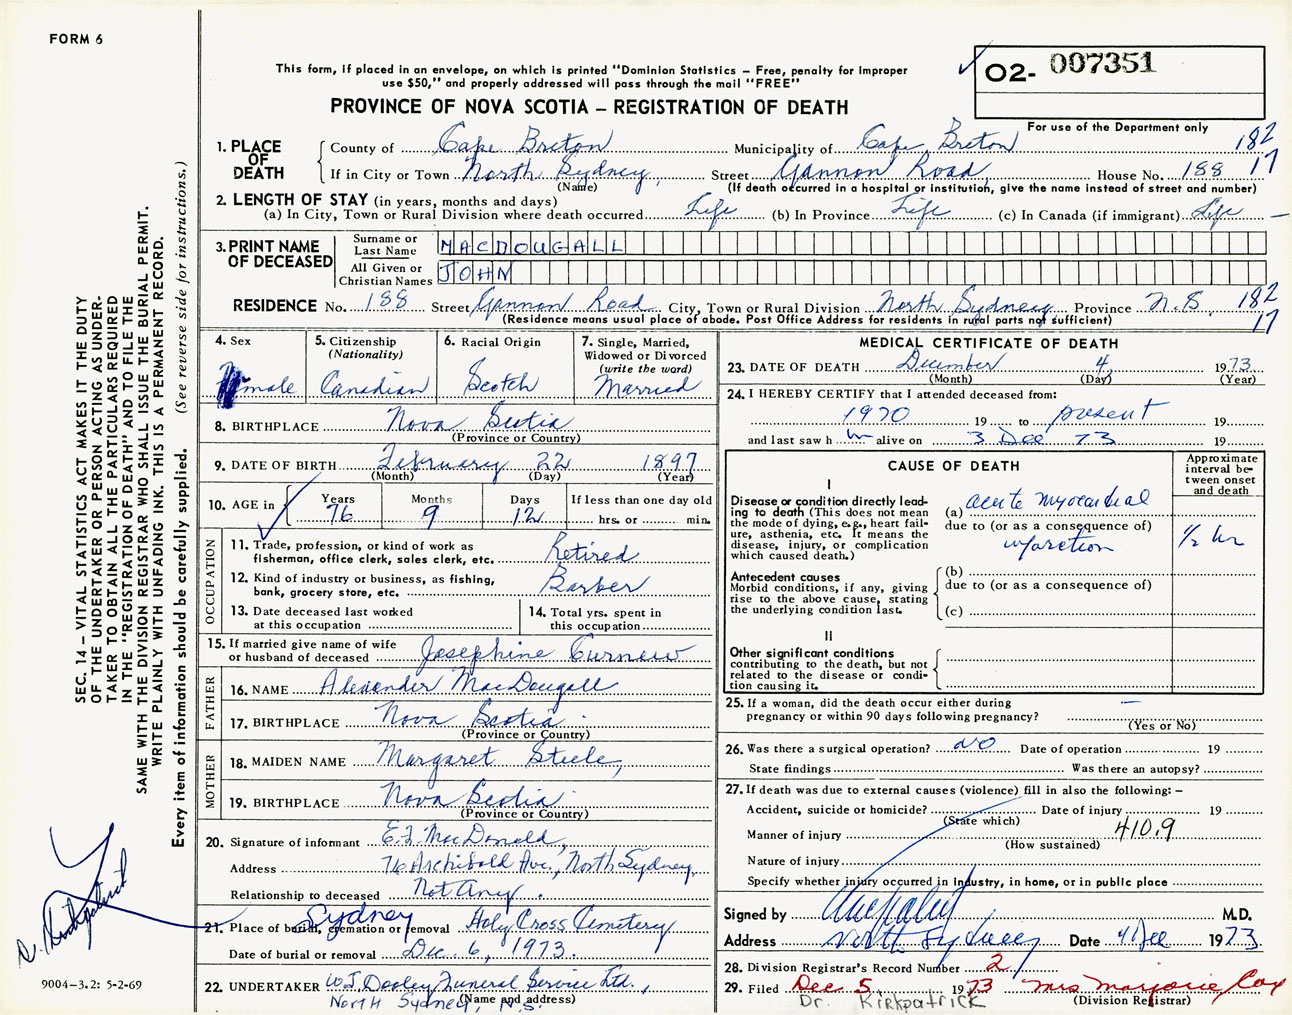 FORM 6
This form, if placed in an envelope, on which is printed "Dominion Statistics – Free, penalty for improper
use $50," and properly addressed will pass through the mail "FREE"
PROVINCE OF NOVA SCOTIA – REGISTRATION OF DEATH
O2- 007351
For use of the Department only
1. PLACE OF DEATH
County of Cape Breton Municipality of Cape Breton 182
If in City or Town North Sydney, Street Gannon Road House No. 188 17
(Name) (If death occurred in a hospital or institution, give the name instead of street and number)
2. LENGTH OF STAY (in years, months and days)
(a) In City, Town or Rural Division where death occurred Life (b) In Province Life (c) In Canada (if immigrant) Life –
3. PRINT NAME OF DECEASED
Surname or Last Name MACDOUGALL
All Given or Christian Names JOHN
RESIDENCE No. 188 Street Gannon Road City, Town or Rural Division North Sydney Province N.S. 182
(Residence means usual place of abode. Post Office Address for residents in rural parts not sufficient) 17
4. Sex male
5. Citizenship (Nationality) Canadian
6. Racial Origin Scotch
7. Single, Married, Widowed or Divorced (write the word) Married
8. BIRTHPLACE Nova Scotia
(Province or Country)
9. DATE OF BIRTH February 22 1897
(Month) (Day) (Year)
10. AGE in Years 76 Months 9 Days 12 If less than one day old
hrs. or min.
OCCUPATION
11. Trade, profession, or kind of work as
fisherman, office clerk, sales clerk, etc. Retired
12. Kind of industry or business, as fishing,
bank, grocery store, etc. Barber
13. Date deceased last worked
at this occupation
14. Total yrs. spent in
this occupation
15. If married give name of wife
or husband of deceased Josephine Curnew
FATHER
16. NAME Alexander MacDougall
17. BIRTHPLACE Nova Scotia
(Province or Country)
MOTHER
18. MAIDEN NAME Margaret Steele,
19. BIRTHPLACE Nova Scotia
(Province or Country)
20. Signature of informant E.J. MacDonald,
Address 76 Archibald Ave., North Sydney,
Relationship to deceased Not Any.
Sydney
21. Place of burial, cremation or removal Holy Cross Cemetery
Date of burial or removal Dec. 6, 1973.
22. UNDERTAKER W.J. Dooley Funeral Service Ltd.,
(Name and address)
North Sydney, N.S.
MEDICAL CERTIFICATE OF DEATH
23. DATE OF DEATH December 4 1973
(Month) (Day) (Year)
24. I HEREBY CERTIFY that I attended deceased from:
1970 19 to present 19
and last saw h im alive on 3 Dec 73 19
CAUSE OF DEATH
Approximate interval between onset and death
I
Disease or condition directly leading to death (This does not mean the mode of dying, e.g., heart failure, asthenia, etc. It means the disease, injury, or complication which caused death.)
(a) acute myocardial
due to (or as a consequence of)
infarction 1/2 hr
Antecedent causes
Morbid conditions, if any, giving rise to the above cause, stating the underlying condition last.
(b)
due to (or as a consequence of)
(c)
II
Other significant conditions
contributing to the death, but not related to the disease or condition causing it.
25. If a woman, did the death occur either during
pregnancy or within 90 days following pregnancy? –
(Yes or No)
26. Was there a surgical operation? No Date of operation 19
State findings Was there an autopsy?
27. If death was due to external causes (violence) fill in also the following: –
Accident, suicide or homicide? Date of injury 19
(State which)
Manner of injury 410.9
(How sustained)
Nature of injury
Specify whether injury occurred in industry, in home, or in public place
Signed by M.D.
Address North Sydney Date 4 Dec 1973
28. Division Registrar's Record Number 2
29. Filed Dec 5 1973 Mrs Marjorie Cox
(Division Registrar)
Dr. Kirkpatrick
SEC. 14 – VITAL STATISTICS ACT MAKES IT THE DUTY
OF THE UNDERTAKER OR PERSON ACTING AS UNDERTAKER
TO OBTAIN ALL THE PARTICULARS REQUIRED
IN THE "REGISTRATION OF DEATH" AND TO FILE THE
SAME WITH THE DIVISION REGISTRAR WHO SHALL ISSUE THE BURIAL PERMIT.
WRITE PLAINLY WITH UNFADING INK. THIS IS A PERMANENT RECORD.
Every item of information should be carefully supplied. (See reverse side for instructions.)
D. Kirkpatrick
9004-3.2: 5-2-69